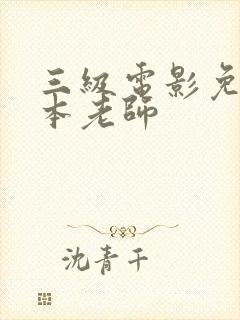 三級電影免
本老師
沈青千